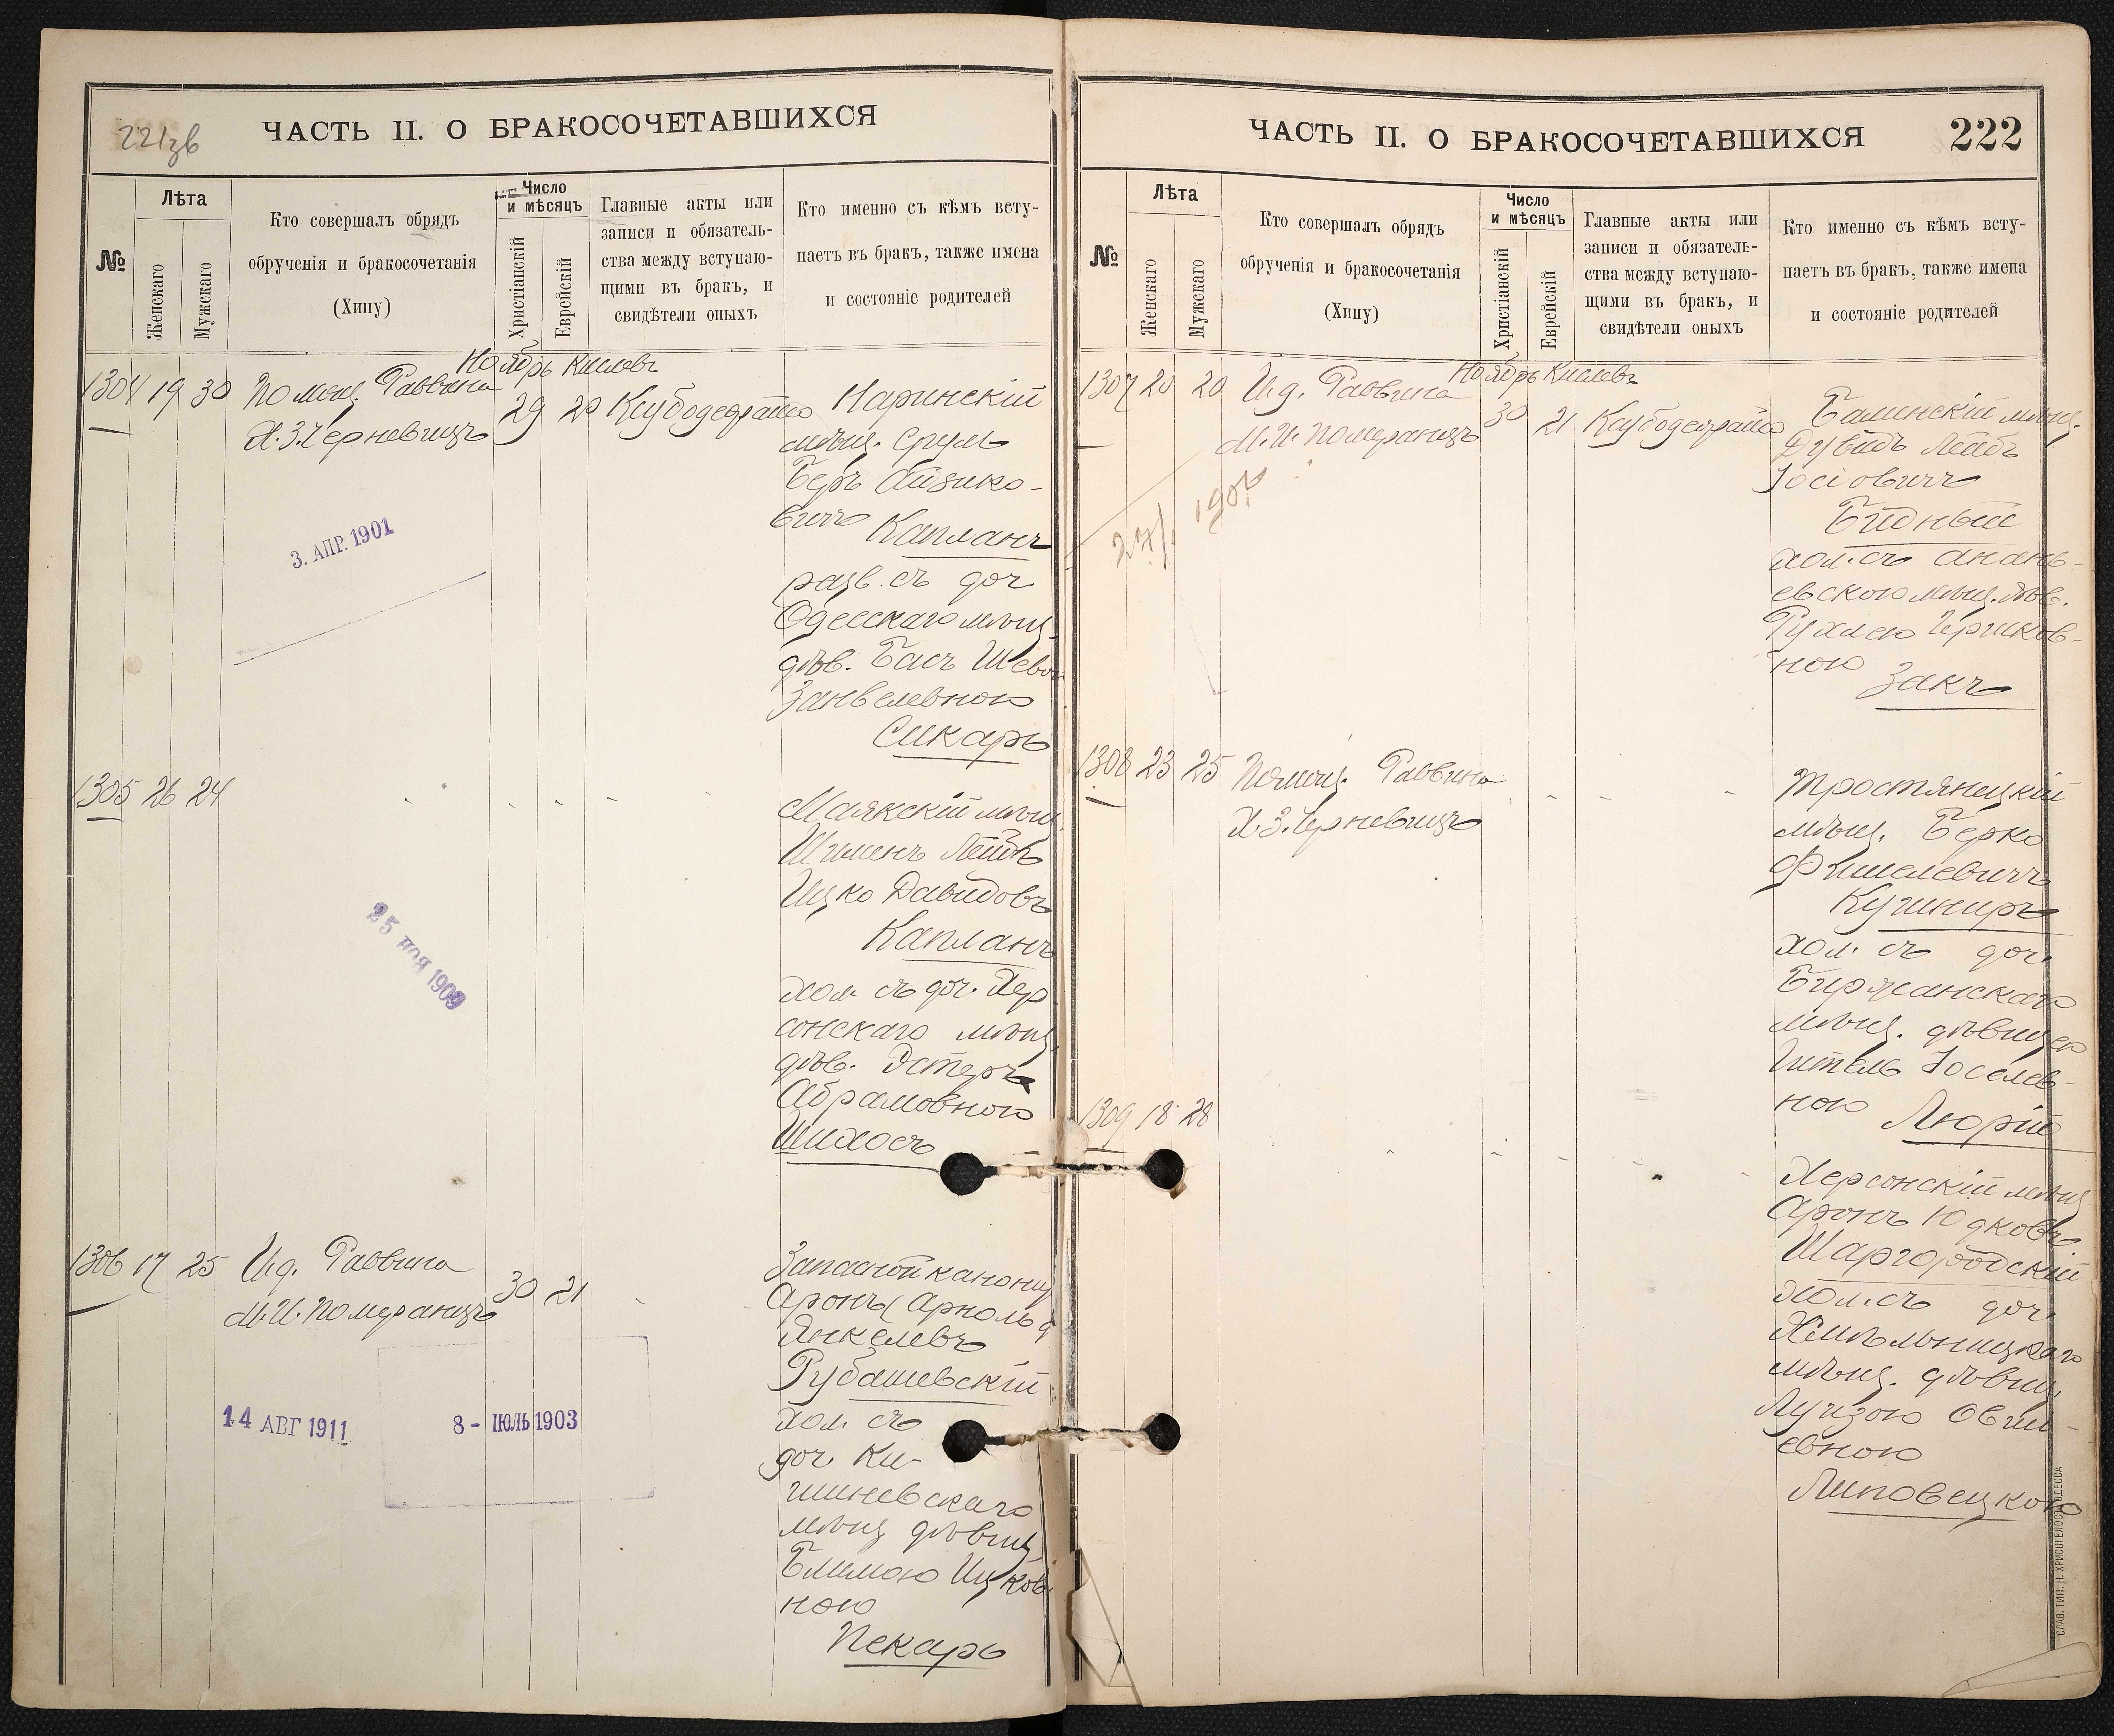 221зв
ЧАСТЬ II. О БРАКОСОЧЕТАВШИХСЯ
№
Лѣта
Женскаго
Мужскаго
Кто совершалъ обрядъ
обрученія и бракосочетанія
(Хипу)
Число
и мѣсяцъ
Христіанскій
Еврейскій
Главные акты или
записи и обязатель-
ства между вступаю-
щими въ бракъ, и
свидѣтели оныхъ
Кто именно съ кѣмъ всту-
паетъ въ бракъ, также имена
и состояніе родителей
Ноябрь Кислевъ
1304 19 30 Помощ. Раввина
Х.З. Черневицъ
29 20
Наринскій
мѣщ. Срулъ
Беръ Айзико-
вичъ
Капланъ
разв. съ доч
Одесскаго мѣщ.
дѣв. Басъ Шевою
Занвелевною
Сикаръ
3. АПР. 1901
1305 26 24
Маякскій мѣщ.
Шименъ Лейбъ
Ицко Давидовъ
Капланъ
хол. съ доч. Хер
сонскаго мѣщ.
дѣв. Эстеръ
Абрамовною
Шихосъ
25 ноя 1909
1306 17 25 Ид. Раввина
М.И. Померанцъ
30 21
Запасной канонир
Аронъ (Арнольд
Янкелевъ
Рубашевскій
хол. съ
доч. Ки-
шиневскаго
мѣщ дѣвиц.
Блимою Ицков
ною
Пекаръ
14 АВГ 1911
8 - ІЮЛЬ 1903
ЧАСТЬ II. О БРАКОСОЧЕТАВШИХСЯ
222
№
Лѣта
Женскаго
Мужскаго
Кто совершалъ обрядъ
обрученія и бракосочетанія
(Хипу)
Число
и мѣсяцъ
Христіанскій
Еврейскій
Главные акты или
записи и обязатель-
ства между вступаю-
щими въ бракъ, и
свидѣтели оныхъ
Кто именно съ кѣмъ всту-
паетъ въ бракъ, также имена
и состояніе родителей
Ноябрь Кислевъ
1307 20 20 Ид. Раввина
М.И. Померанцъ
30 21
Балинскій мѣщ.
Дувидъ Лейбъ
Іосіовичъ
Бидный
хол. съ Анань-
евскою мѣщ. дѣв.
Рухлею Гершков-
ною
Закъ
1308 23 25 Помощ. Раввина
Х.З. Черневицъ
Тростянецкій
мѣщ. Берко
Фишелевичъ
Кушниръ
хол. съ доч.
Бирзанскаго
мѣщ. дѣвицею
Гитель Іоселев-
ною
Люрій
1309 18 28
Херсонскій мѣщ
Аронъ Юдковъ
Шаргородскій
хол. съ доч.
Хмѣльницкаго
мѣщ. дѣвиц.
Луизою Овши-
евною
Липовецкою
СЛАВ. ТИП. Н. ХРИСОГЕЛОСЪ, ОДЕССА